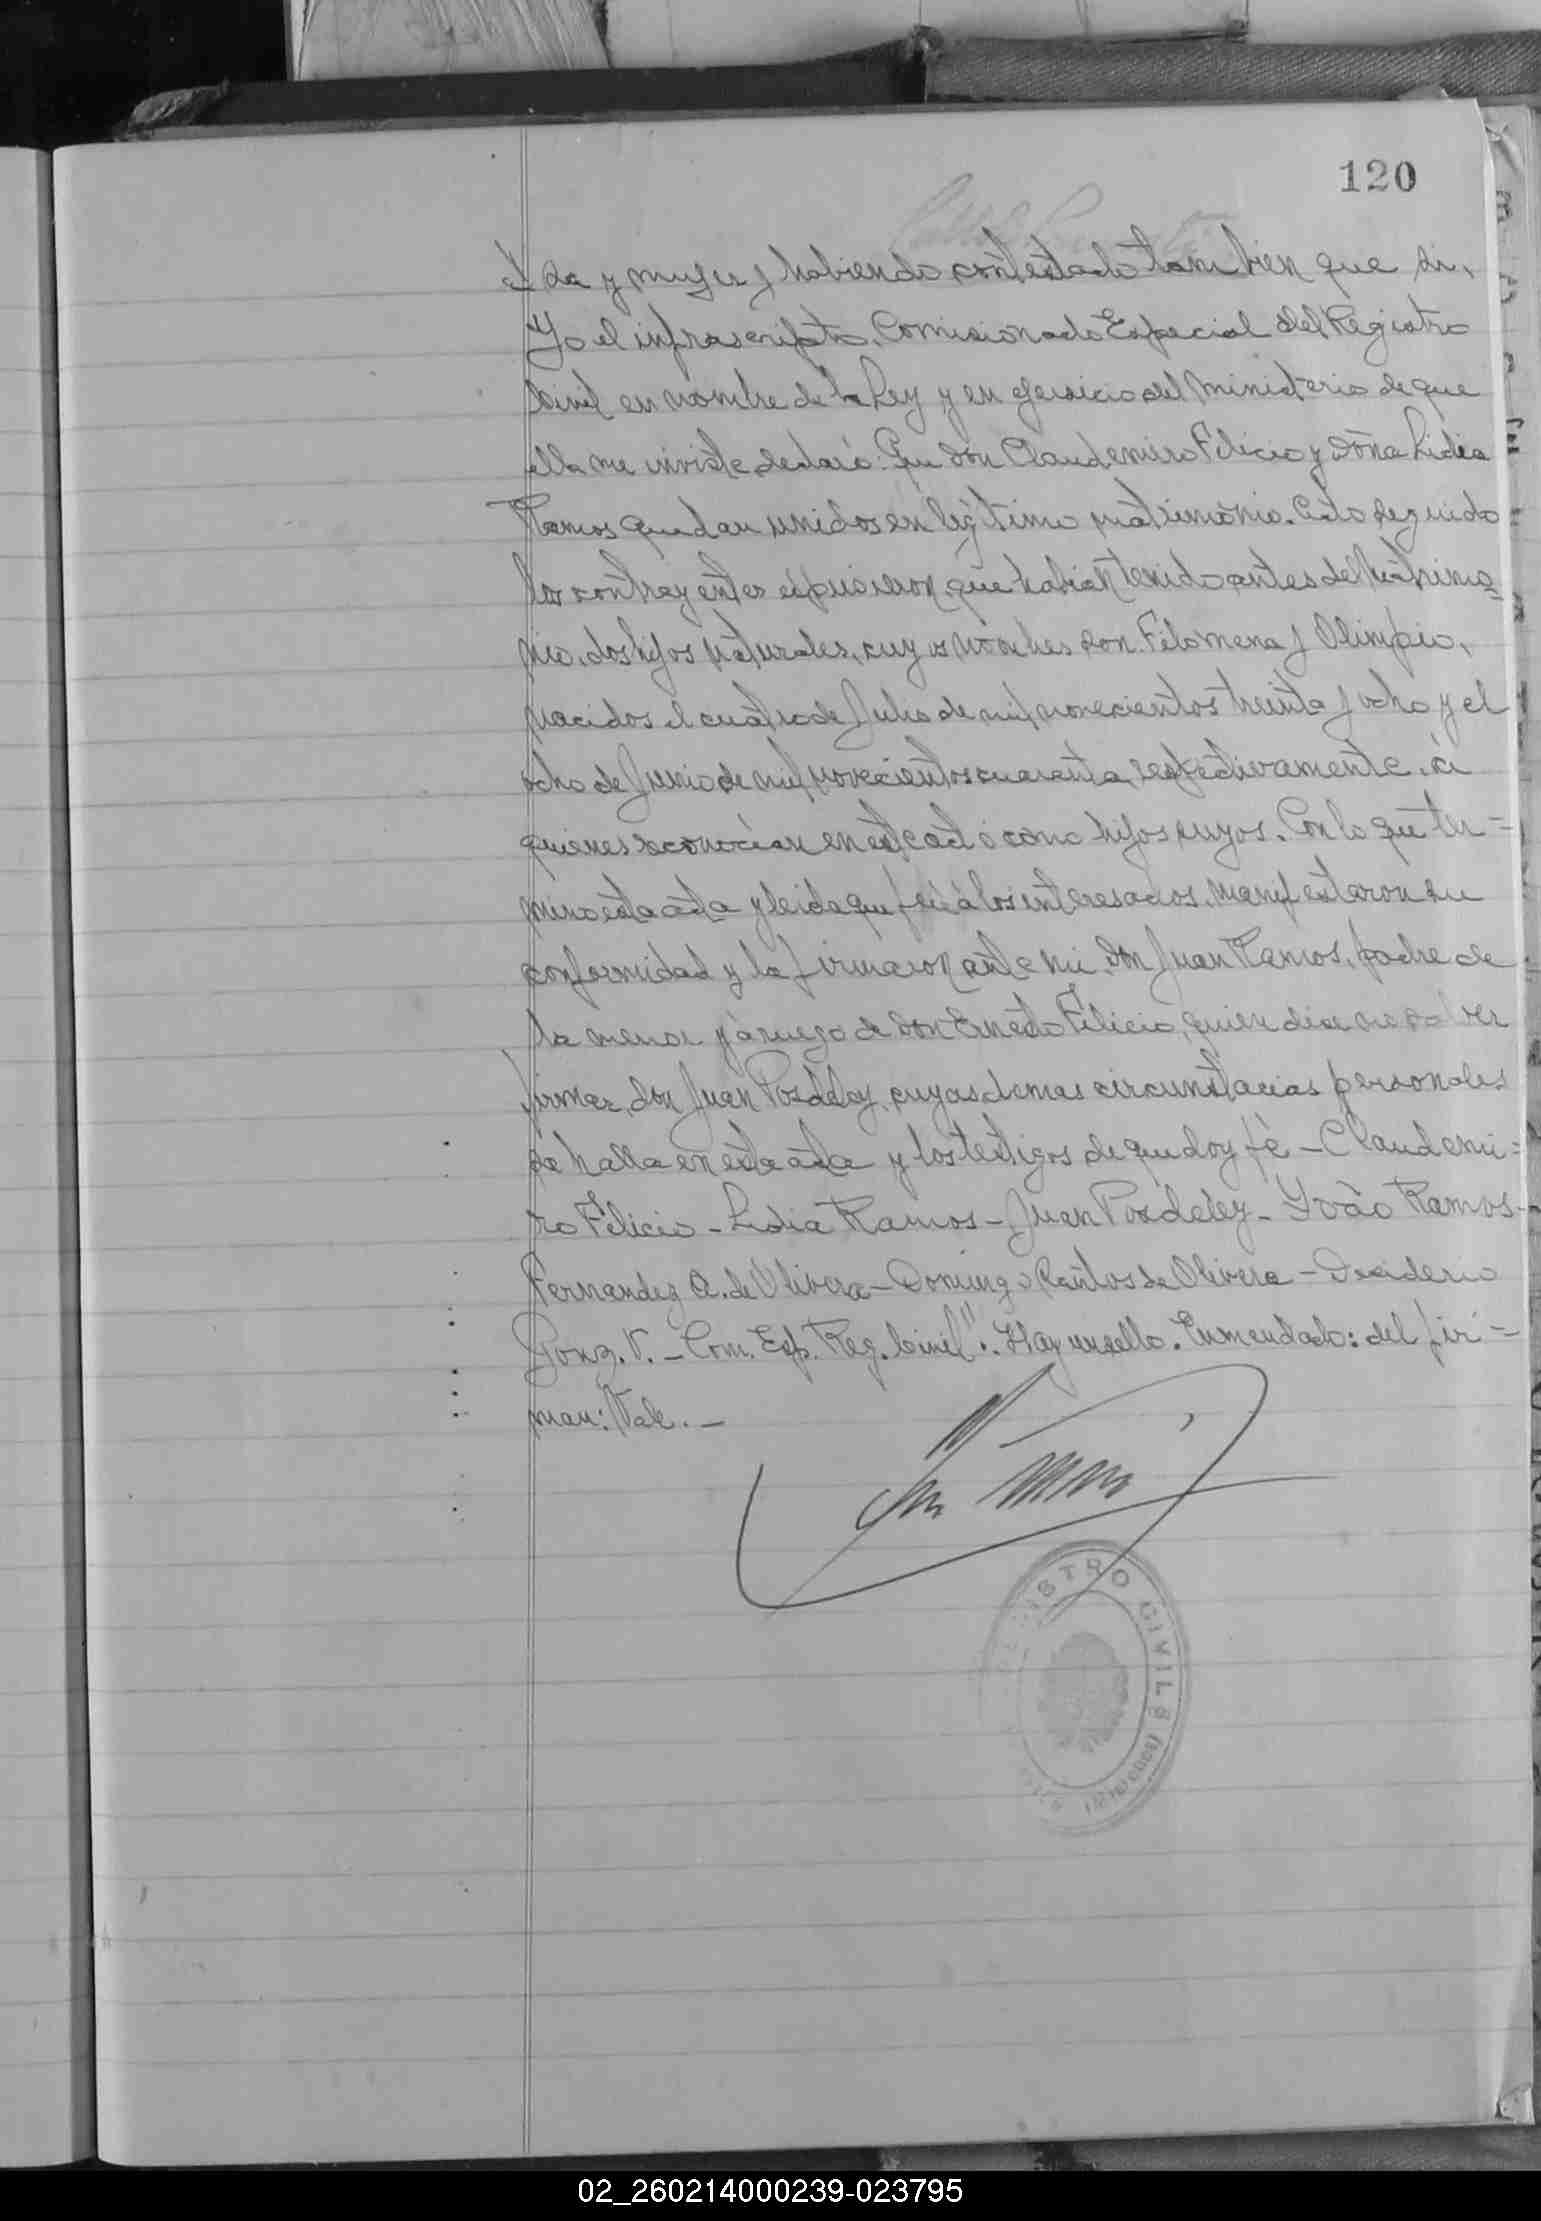 120
da y mujer y habiendo contestado tambien que si,
Yo el infrascripto, Comisionado Especial del Registro
Civil en nombre de la Ley y en ejersicio del ministerio de que
ella me inviste declaró: Que don Claudemiro Felicio y doña Lidia
Ramos quedan unidos en legitimo matrimonio. Acto seguido
los contrayentes expusieron que habian tenido antes del matrimo=
nio, dos hijos naturales, cuyos nombres son Filomena y Olimpio,
nacidos el cuatro de Julio de mil novecientos treinta y ocho y el
ocho de Junio de mil novecientos cuarenta, respectivamente, á
quienes reconocian en este acto como hijos suyos. Con lo que ter=
mino esta acta y leida que fué á los interesados, manifestaron su
conformidad y la firmaron ante mi, don Juan Ramos, padre de
la menor y á ruego de don Ernesto Felicio, quien dise no saber
firmar, don Juan Posdeley, cuyas demas circunstacias personales
se halla en esta acta y los testigos de que doy fé - Claudemi=
ro Felicio - Lidia Ramos - Juan Posdeley - Yoào Ramos -
Fernandez A. de Olivera - Domingo Santos de Olivera - Desiderio
Gonz. V. - Com. Esp. Reg. Civil". Hay un sello. Enmendado: del fir=
man: Vale. -
REGISTRO CIVIL
02_260214000239-023795